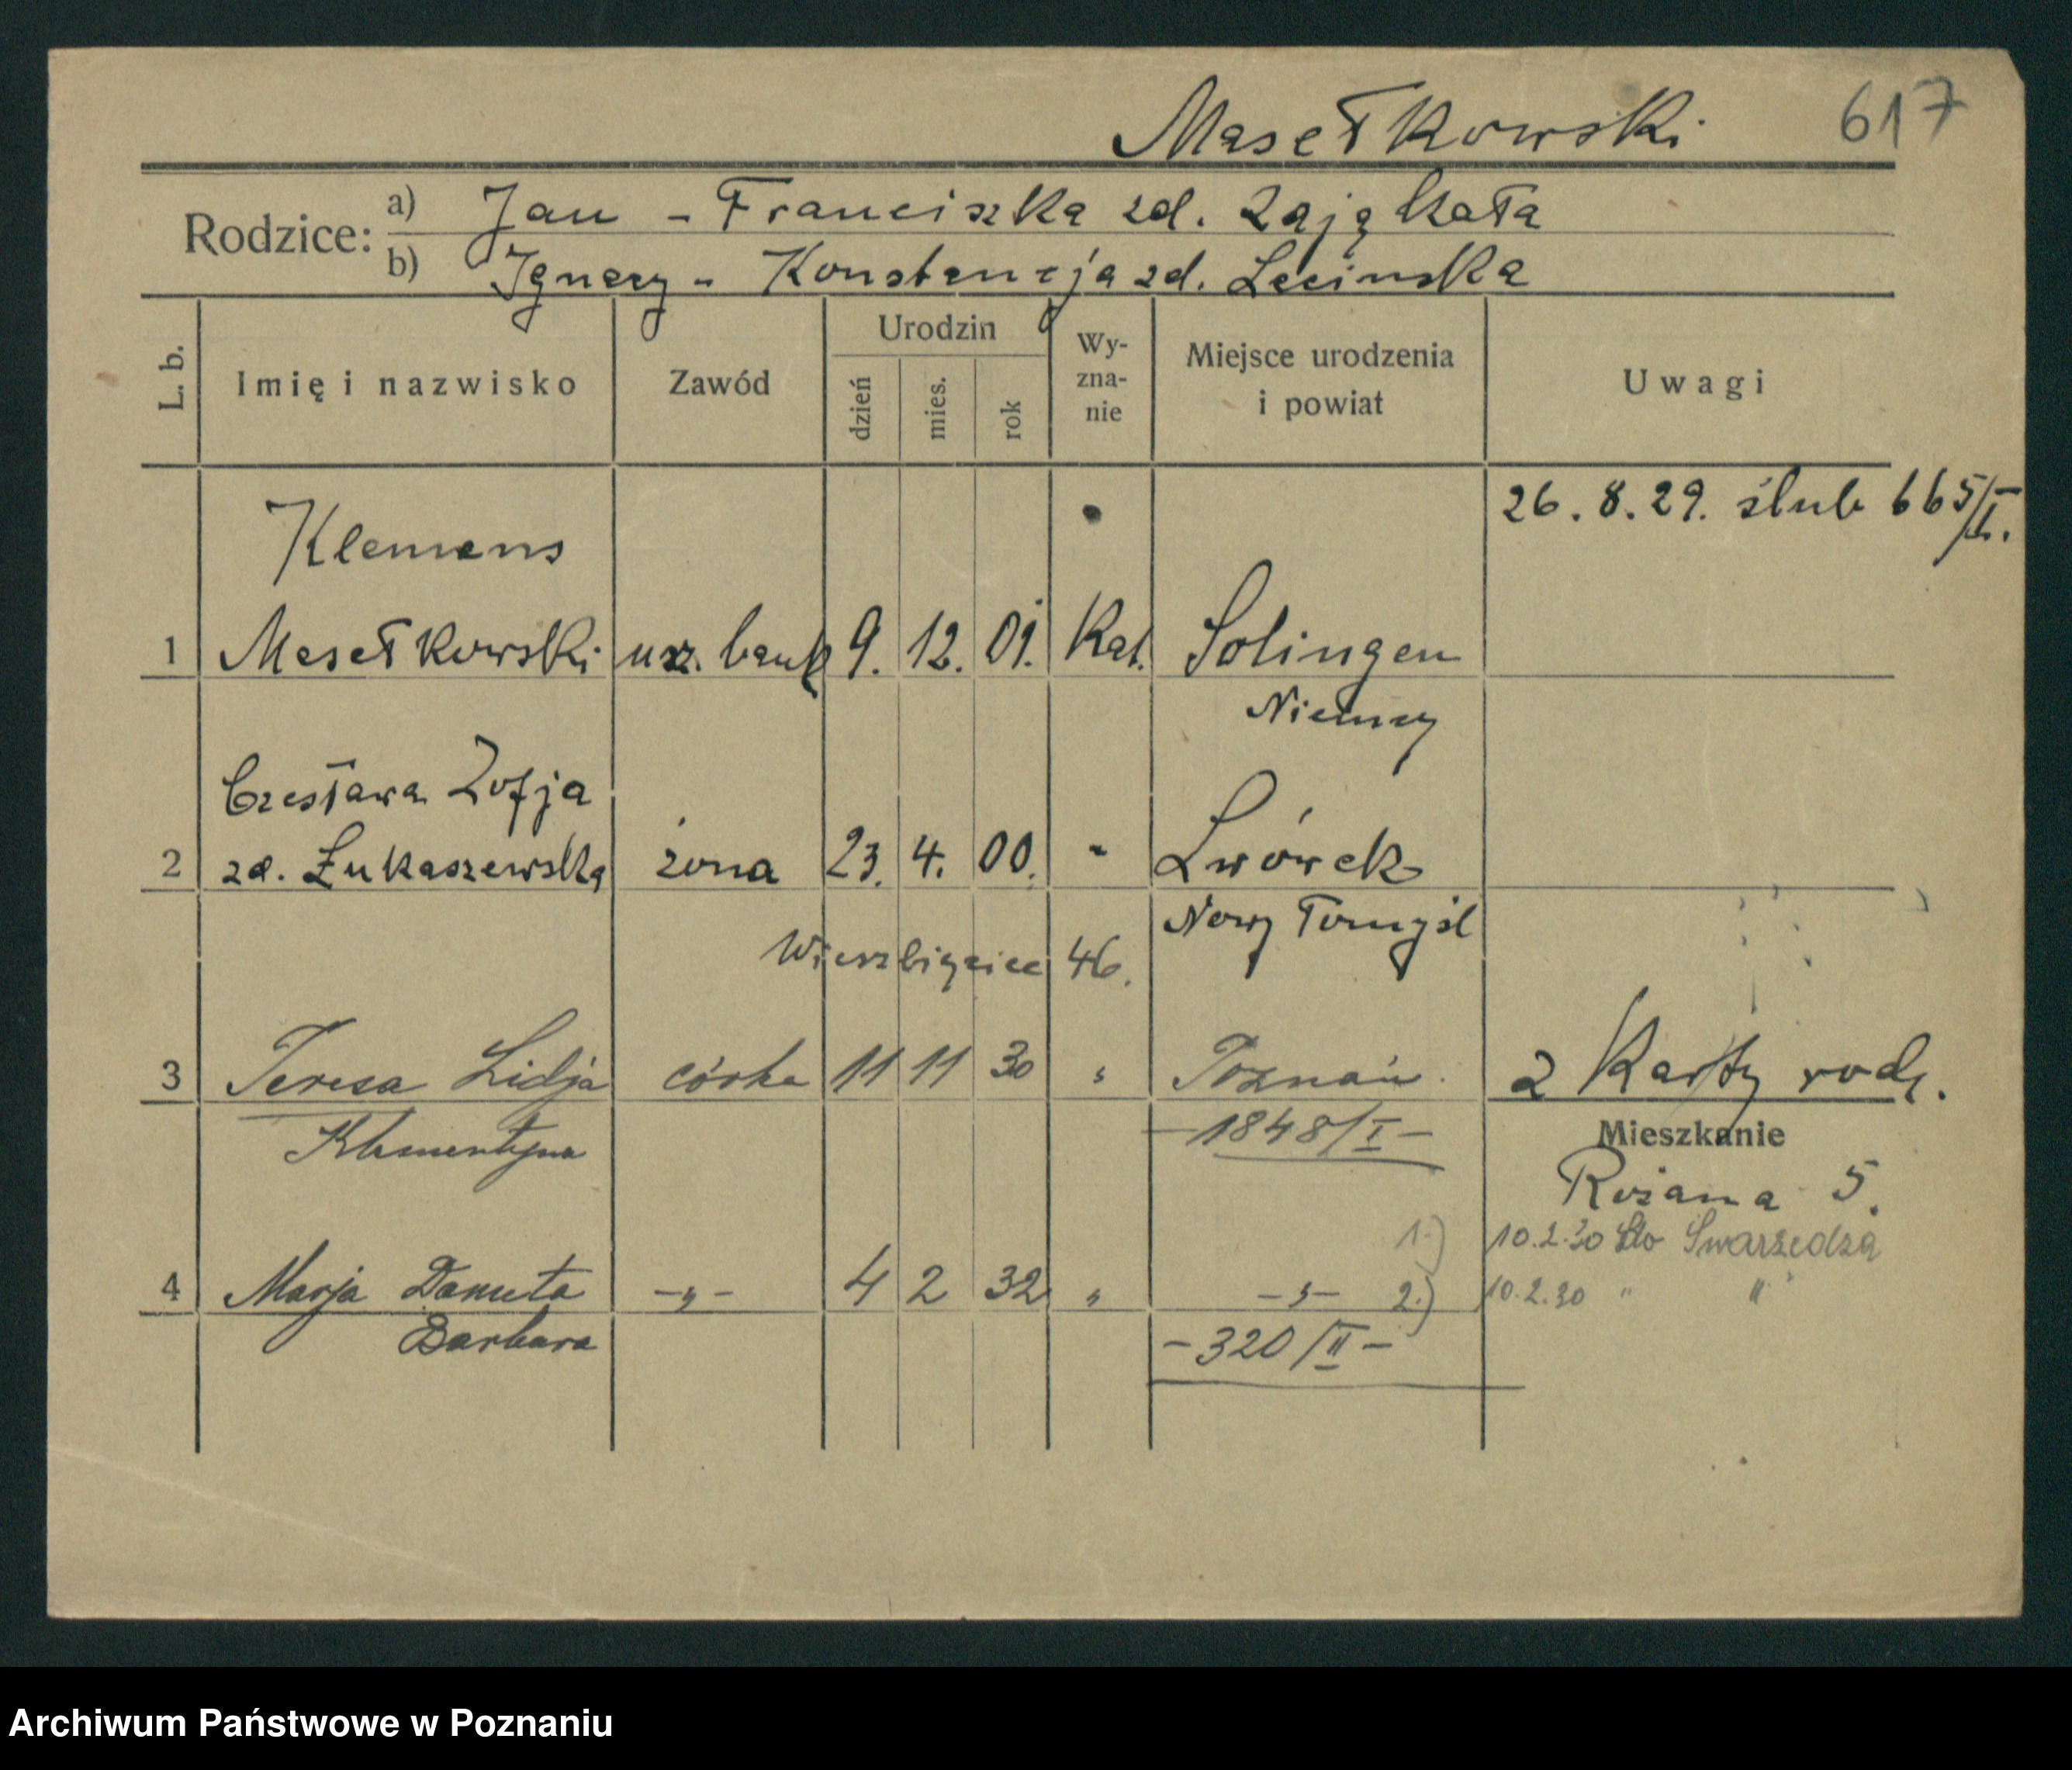 Masełkowski 617
Rodzice: a) Jan - Franciszka zd. Zając Kata
b) Ignacy - Konstancja zd. Lecinska
L. b. Imię i nazwisko Zawód Urodzin dzień mies. rok Wy-zna-nie Miejsce urodzenia i powiat Uwagi
26. 8. 29. ślub 665/I.
Klemens
1 Masełkowski urz. bank 9. 12. 01. Kat. Solingen
Niemcy
Czesława Zofja
2 zd. Łukaszewska żona 23. 4. 00. " Lwówek
Nowy Tomyśl
Wierzbięcice 46.
3 Teresa Lidja córka 11 11 30 " Poznań. 2 Karty rodz.
Klementyna - 1848/I - Mieszkanie
Różana 5.
1.) 10.2.30 do Swarzędza
4 Marja Danuta -"- 4 2 32 " -"- 2.) 10.2.30 " "
Barbara - 320/II -
Archiwum Państwowe w Poznaniu